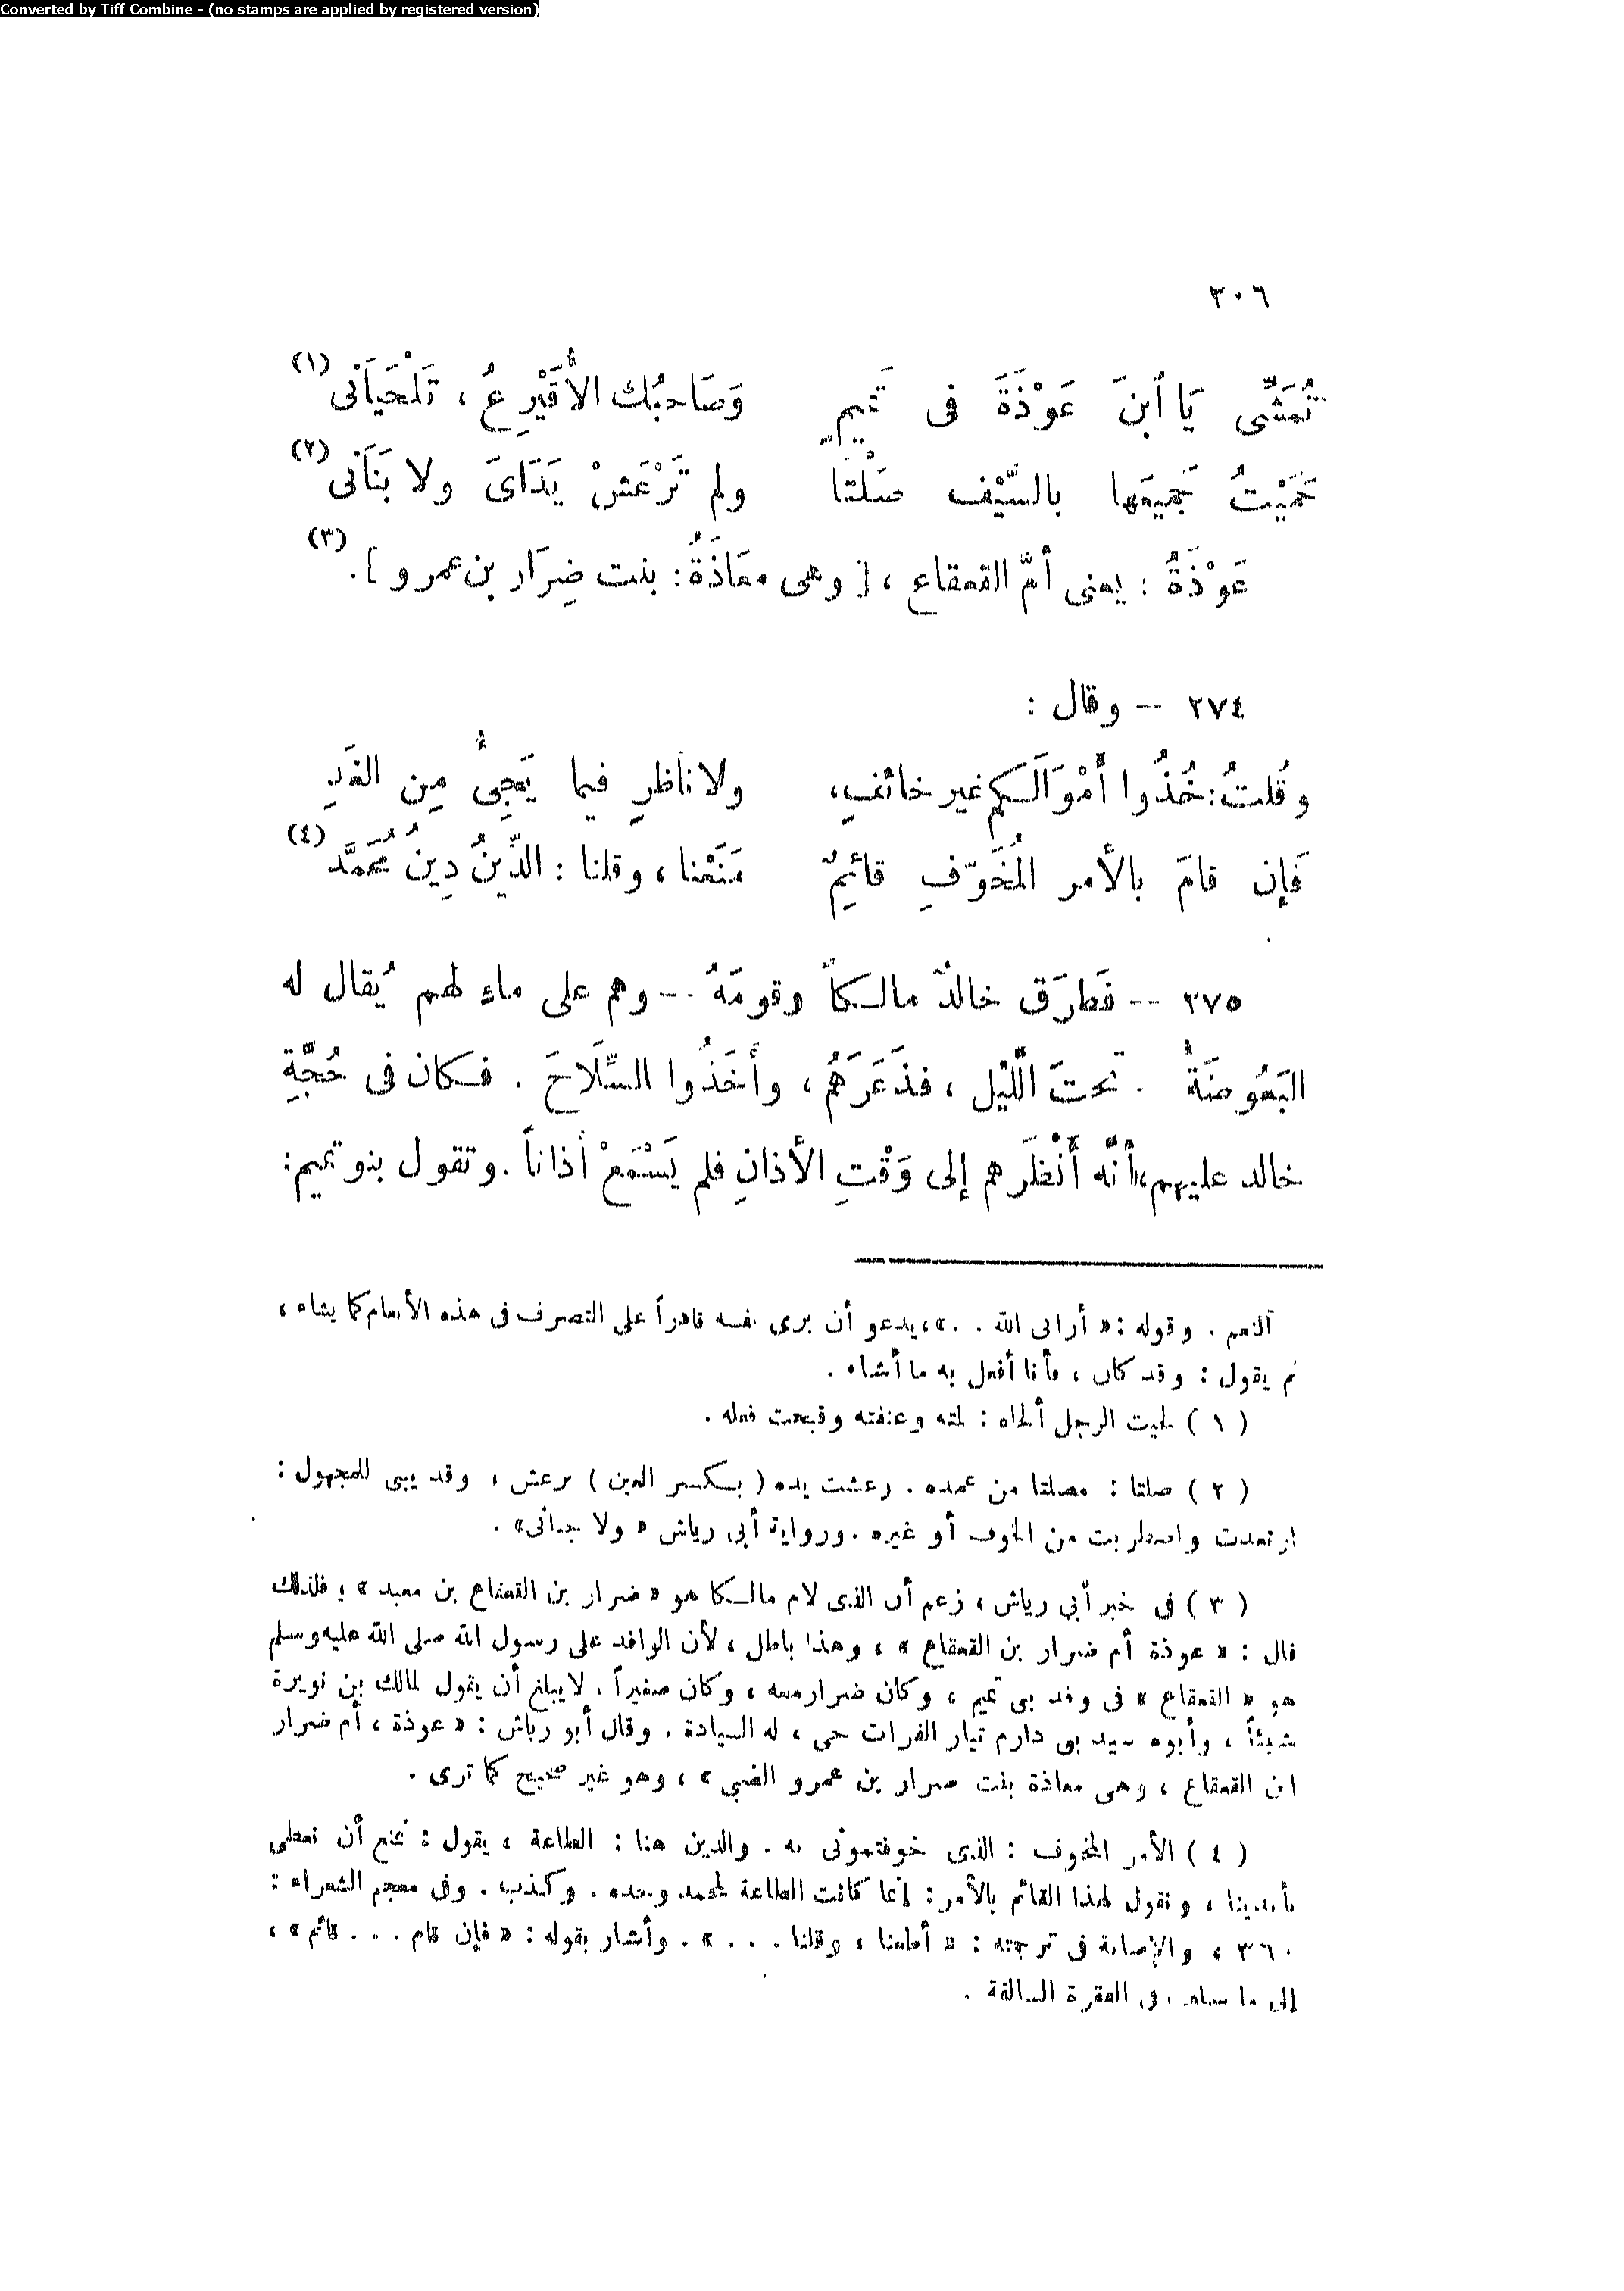 Converted by Tiff Combine - (no stamps are applied by registered version)
٢٠٦
تُمَشِّى يَا ٱبنَ عَوْذَةَ فى تَميمٍ وَصَاحبُك الأُقَيْرِعُ ، تَلْحَيَانى (١)
حَمَيْتُ جَميعَها بالسَّيْف صَلْتا ولم تَرْعَشْ يَدَاىَ ولا بنَانى (٢)
عَوْذَةُ : يعنى أمَّ القعقاع ، [ وهى معَاذَةُ : بنت ضِرَار بن عمرو ] . (٣)
٢٧٤ -- وقال :
وقُلتُ : خُذُوا أَمْوَالَكم غير خائفٍ ، ولا ناظرٍ فيما يَجِىُٔ مِن الغَدِ
فَإن قامَ بالأمر المُخَوَّفِ قائمٌ مَنَعْنا ، وقلنا : الدِّينُ دِينُ مُحَمَّد (٤)
٢٧٥ -- فَطرَق خالدٌ مالكاً وقومَهُ -- وهم على ماءٍ لهم يُقال له
البَعُوضَةُ . تحتَ اللَّيْل ، فذَعَرَهُم ، وأخَذُوا السِّلَاحَ . فكان فى حُجَّةِ
خالد عليهم، أنَّه أَنْظَرَهم إلى وَقْتِ الأذانِ فلم يَسْمَعْ أذاناً . وتقول بنو تميم :
النعم . وقوله : « أرانى الله . . »، يدعو أن يرى نفسه قادراً على التصرف فى هذه الأنعام كما يشاء ،
ثم يقول : وقد كان ، فأنا أفعل به ما أشاء .
( ١ ) لحيت الرجل ألحاه : لمته وعنفته وقبحت فعله .
( ٢ ) صلتا : مصلتا من غمده . رعشت يده ( بكسر العين ) ترعش ، وقد يبنى للمجهول :
ارتعدت واضطربت من الخوف أو غيره . ورواية أبى رياش « ولا جنانى» .
( ٣ ) فى خبر أبى رياش ، زعم أن الذى لام مالكا هو « ضرار بن القعقاع بن معبد » ؛ فلذلك
قال : « عوذة أم ضرار بن القعقاع » ، وهذا باطل ، لأن الوافد على رسول الله صلى الله عليه وسلم
هو « القعقاع » فى وفد بنى تميم ، وكان ضرار معه ، وكان صغيراً . لا يبلغ أن يقول لمالك بن نويرة
شيئاً ، وأبوه سيد بنى دارم تيار الفرات حى ، له السيادة . وقال أبو رياش : « عوذة ، أم ضرار
ابن القعقاع ، وهى معاذة بنت ضرار بن عمرو الضبي » ، وهو غير صحيح كما ترى .
( ٤ ) الأمر المخوف : الذى خوفتمونى به . والدين هنا : الطاعة ، يقول : نمنع أن نعطى
بأيدينا ، ونقول لهذا القائم بالأمر : إنما كانت الطاعة لمحمد وحده . وكذب . وفى معجم الشعراء :
٣٦٠ ، والإصابة فى ترجمته : « أطعنا ، وقلنا . . . » . وأشار بقوله : « فإن قام . . . قائم » ،
إلى ما سلف فى الفقرة السالفة .